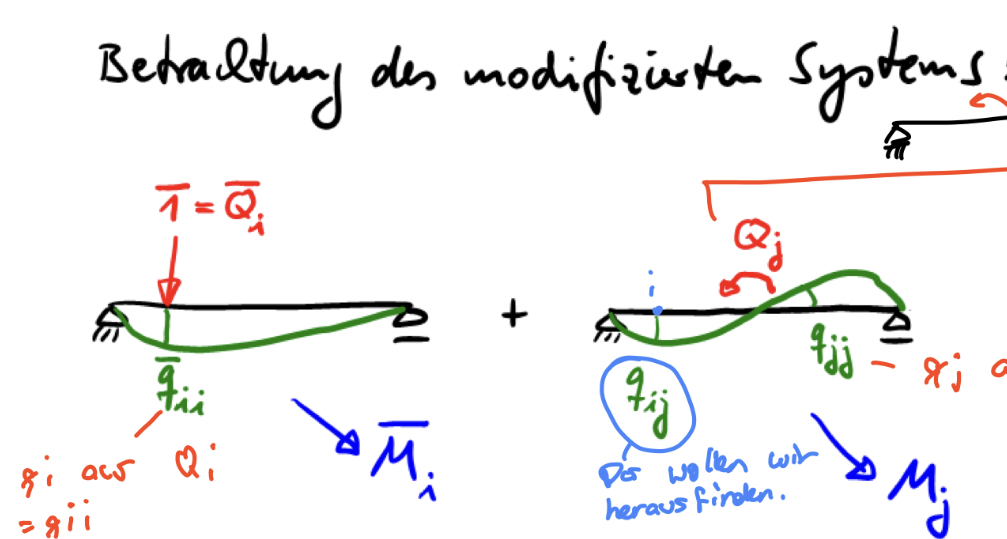 Betrachtung des modifizierten Systems :
1̅ = Q̅i
Qj
i
+
q̅ii
qij
qjj – qj a
M̅i
qi aus Qi
= qii
Das wollen wir
herausfinden.
Mj